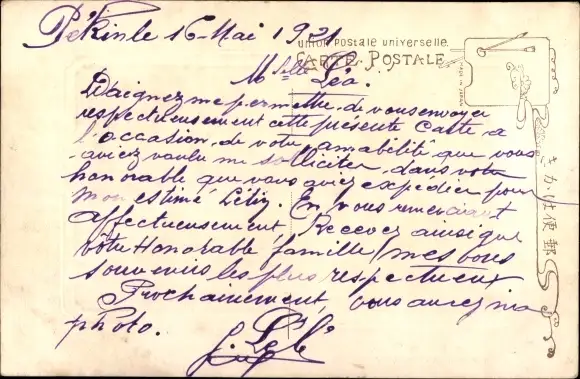 Pékin le 16 Mai 1921
union postale universelle.
CARTE POSTALE
Mselle Léa.
Daignez me permettre de vous envoyer
respectueusement cette présente Carte a
l'occasion de votre amabilité que vous
aviez voulu me solliciter dans votre
honorable que vous aviez expédier pour
mon estimé. En vous remerciant
affectueusement, Recevez ainsi que
votre Honorable famille, mes bons
souvenirs les plus respectueux
Prochainement, vous aurez ma
photo.
きかは便郵